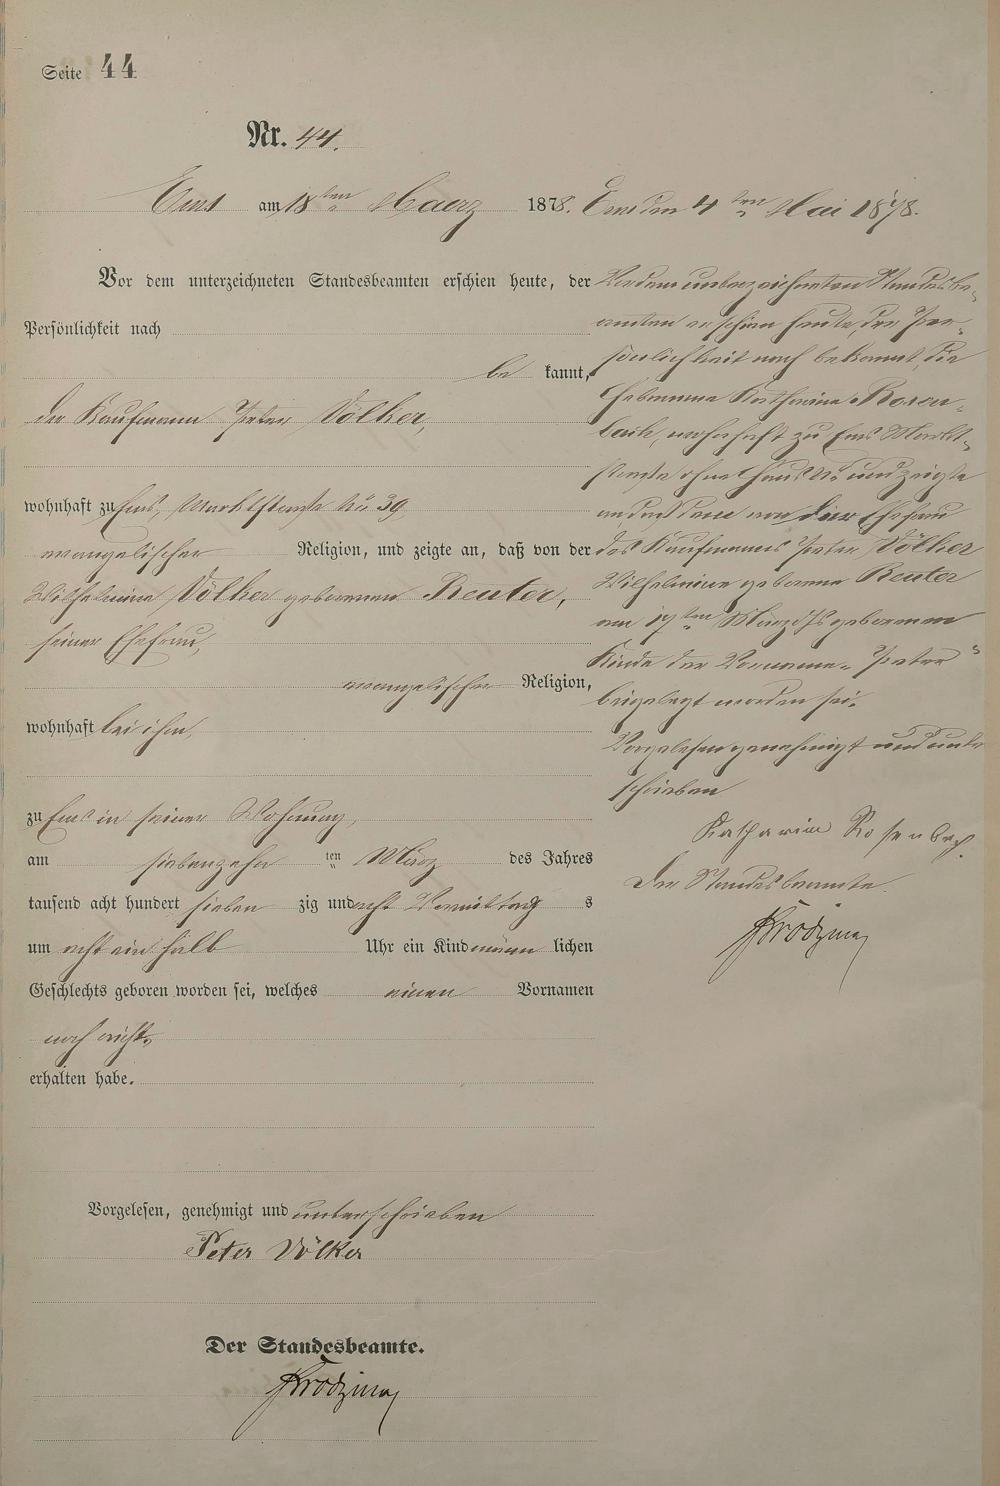 Seite 44
Nr. 44.
Ems am 18ten Maerz 1878.
Vor dem unterzeichneten Standesbeamten erschien heute, der
Persönlichkeit nach
be kannt,
der Kaufmann Peter Völker,
wohnhaft zu Ems, Marktstraße No 39,
evangelischer Religion, und zeigte an, daß von der
Wilhelmine Völker geborenen Reuter,
seiner Ehefrau,
evangelischer Religion,
wohnhaft bei ihm,
zu Ems in seiner Wohnung,
am siebenzehn ten März des Jahres
tausend acht hundert sieben zig und acht Vormittag s
um acht ein halb Uhr ein Kind männ lichen
Geschlechts geboren worden sei, welches einen Vornamen
noch nicht
erhalten habe.
Vorgelesen, genehmigt und unterschrieben
Peter Völker
Der Standesbeamte.
Ems den 4ten Mai 1878.
Vor dem unterzeichneten Standesbe-
amten erschien heute, der Per-
sönlichkeit nach bekannt, die
Hebamme Katharina Rosen-
bach, wohnhaft zu Ems Markt-
straße ohne Haus No und zeigte
an, daß dem von der Ehefrau
des Kaufmanns Peter Völker
Wilhelmine geborene Reuter
am 17ten März d Js geborenen
Kinde der Vorname "Peter"
beigelegt worden sei.
Vorgelesen genehmigt und unter
schrieben
Katharina Rosenbach
Der Standesbeamte.